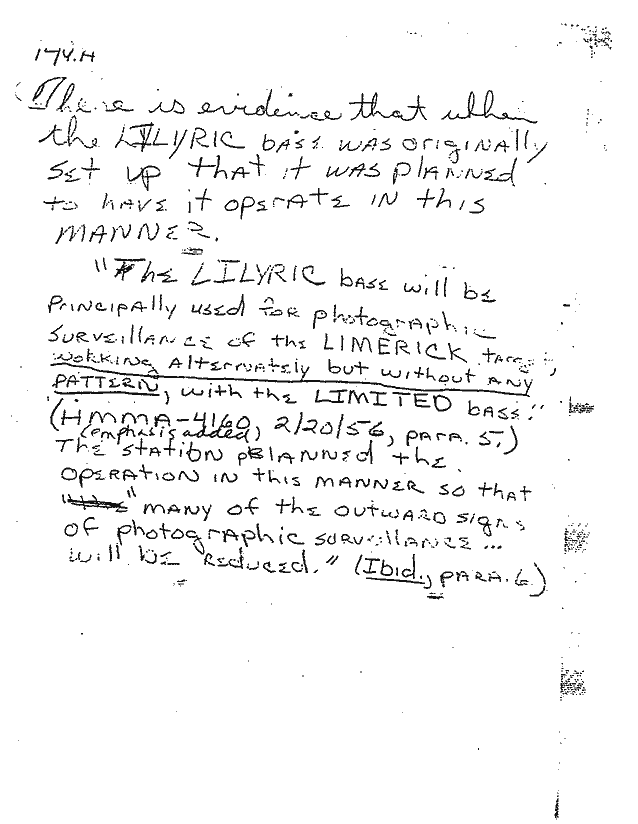 174.H
There is evidence that when
the LILYRIC base was originally
set up that it was planned
to have it operate in this
manner.
"The LILYRIC base will be
principally used for photographic
surveillance of the LIMERICK target,
working alternately but without any
pattern, with the LIMITED base."
(HMMA-4160, 2/20/56, para. 5.)
(emphasis added)
The station planned the
operation in this manner so that
"many of the outward signs
of photographic surveillance...
will be reduced." (Ibid., para. 6)